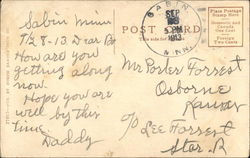 Sabin Minn
7/28-13. Dear Bo
How are you
getting along
now.
Hope you are
well by this
time
Daddy
SABIN
SEP
5 PM
1913
MINN.
POST CARD
Place Postage
Stamp Here
Domestic and
Canada
One Cent
Foreign
Two Cents
Mr Porter Forrest
Osborne
Kansas
c/o Lee Forrest
Star. R